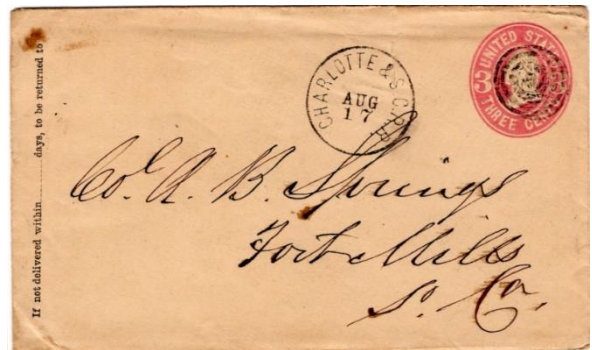 If not delivered within ........ days, to be returned to
CHARLOTTE & S. C. R. R.
AUG
17
UNITED STATES
3
THREE CENTS
Col A. B. Springs
Fort Mills
So. Ca.